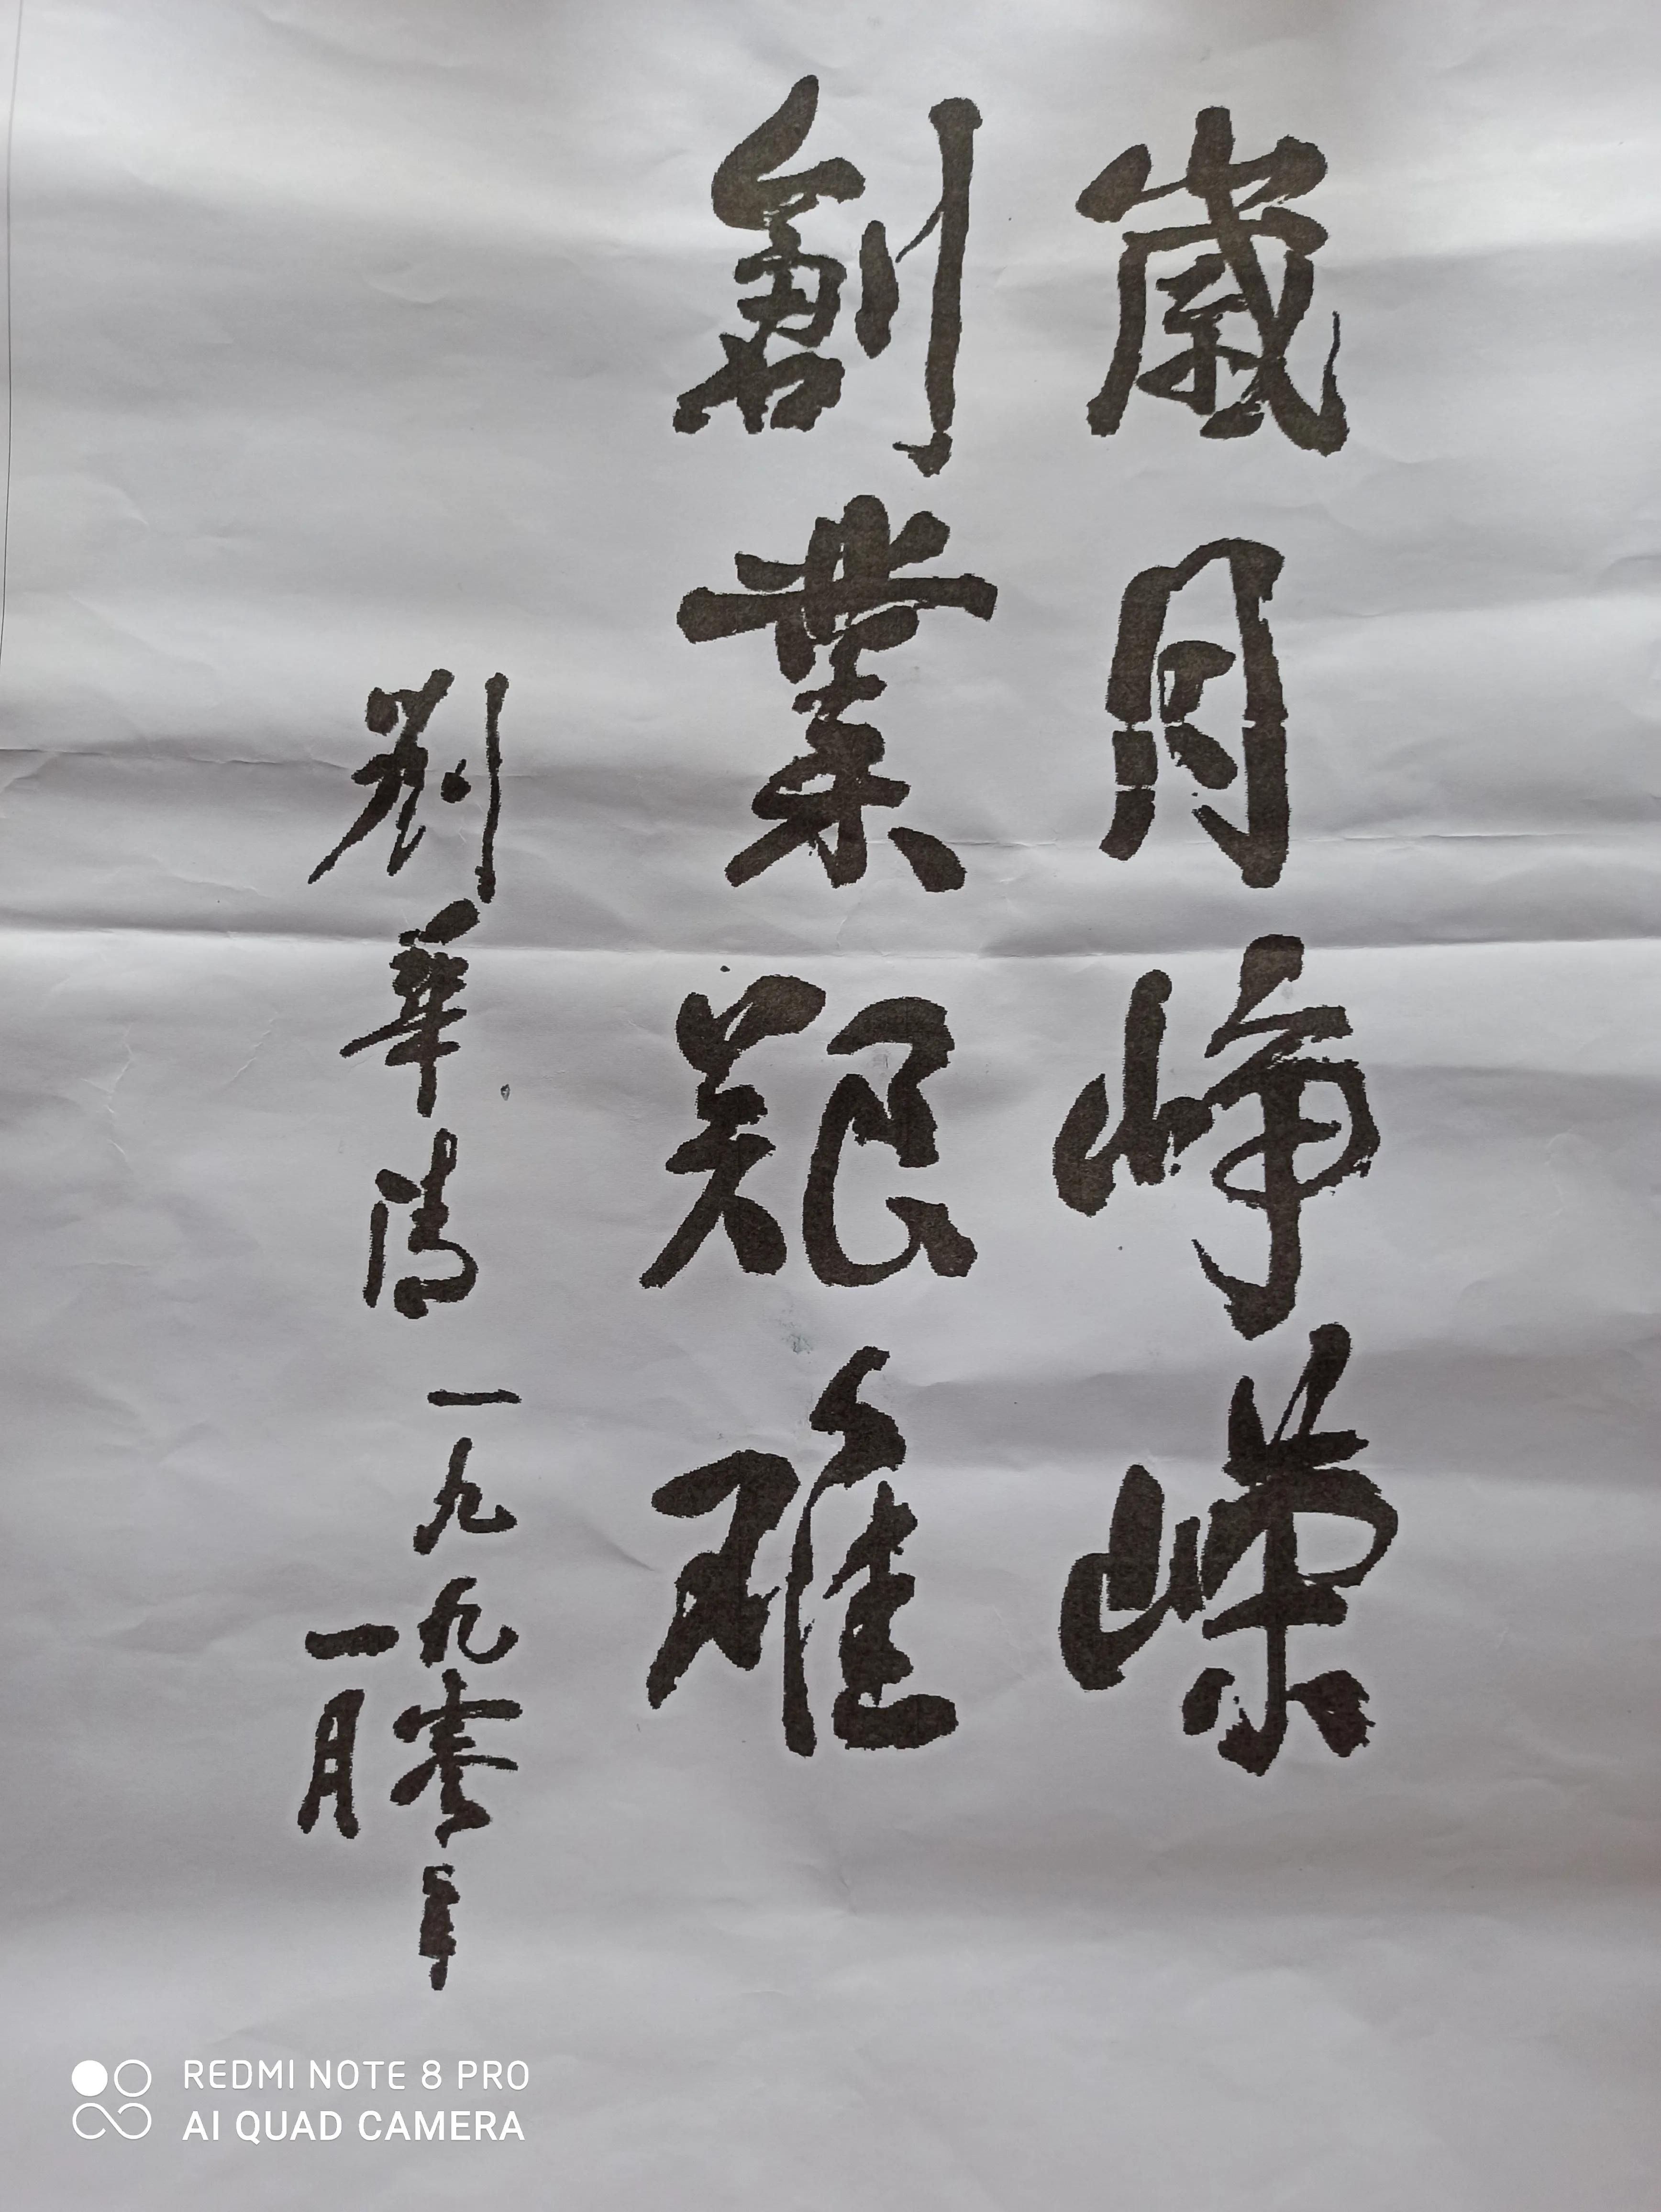 歲月崢嶸
創業艱難
劉華清 一九九零年
一月
REDMI NOTE 8 PRO
AI QUAD CAMERA